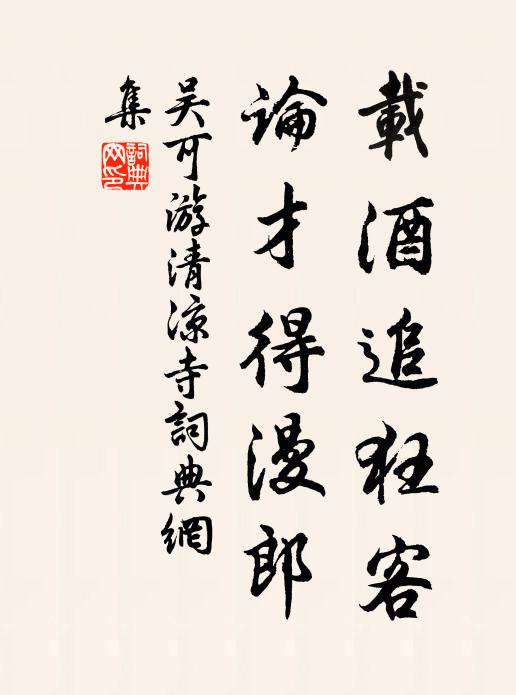 載酒追狂客
論才得漫郎
吴可游清涼寺詞典網
集
詞典
网印